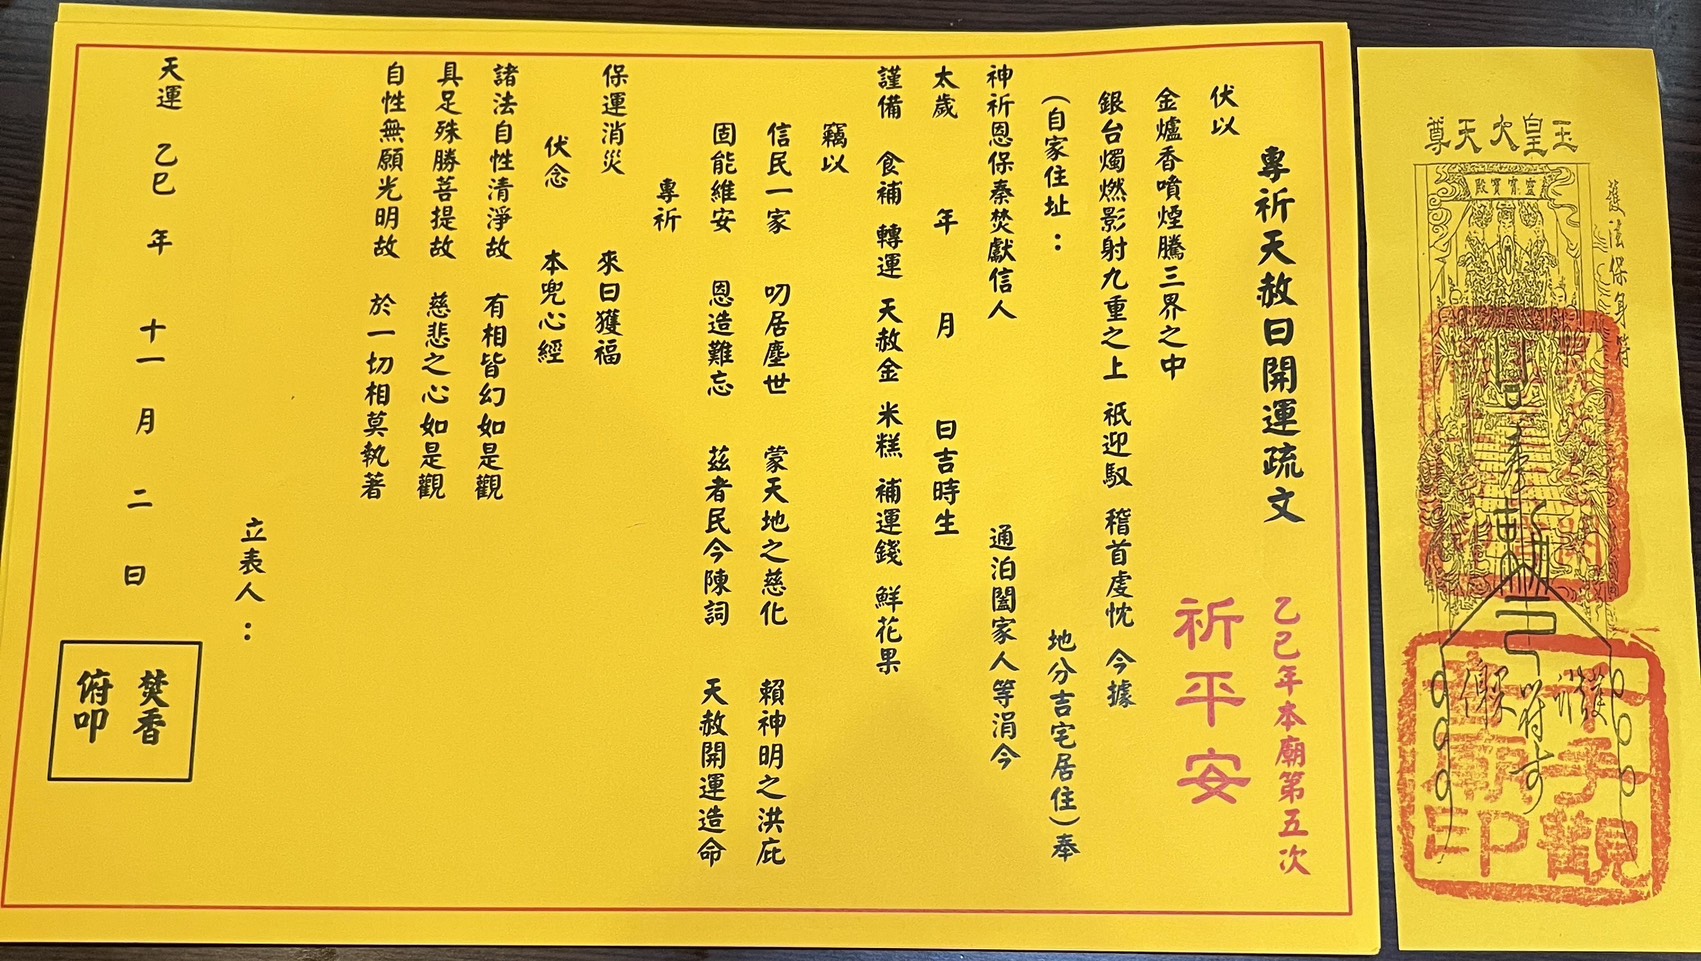 專祈天赦日開運疏文
乙巳年本廟第五次
祈平安
伏以
金爐香噴煙騰三界之中
銀台燭燃影射九重之上 祇迎馭 稽首虔忱 今據
(自家住址： 地分吉宅居住)奉
神祈恩保秦焚獻信人 通泊闔家人等涓今
太歲 年 月 日吉時生
謹備 食補 轉運 天赦金 米糕 補運錢 鮮花果
竊以
信民一家 叨居塵世 蒙天地之慈化 賴神明之洪庇
固能維安 恩造難忘 茲者民今陳詞 天赦開運造命
專祈
保運消災 來日獲福
伏念 本兜心經
諸法自性清淨故 有相皆幻如是觀
具足殊勝菩提故 慈悲之心如是觀
自性無願光明故 於一切相莫執著
立表人：
天運 乙巳 年 十一 月 二 日
焚香
俯叩
玉皇大天尊
護法保身符
靈霄寶殿